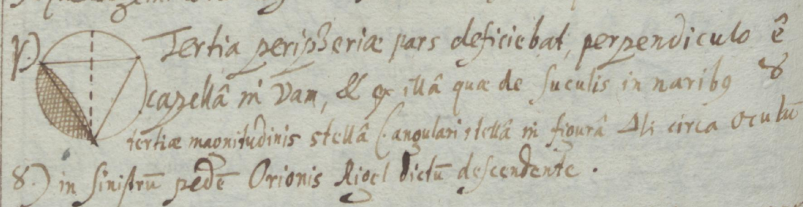 γ.) Tertia peripheriæ pars deficiebat, perpendiculo ê
capellâ in Vam, & ex illâ quæ de suculis in naribꝯ ♉
tertiæ magnitudinis stellâ (angulari stellâ in figurâ Δli circa oculū
♉.) in sinistrū pedē Orionis Rigel dictū descendente.